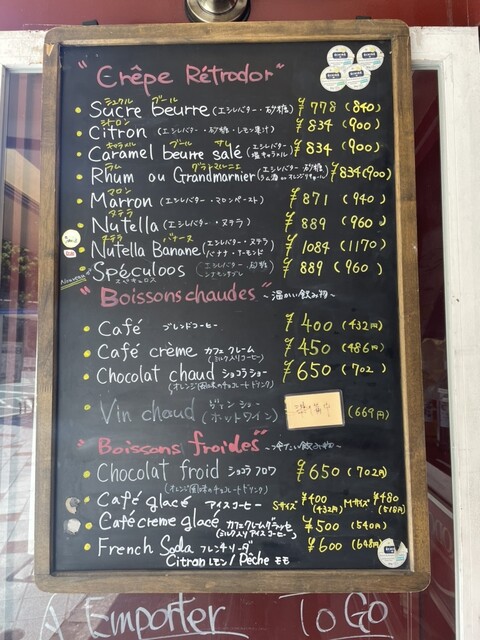 "Crêpe Rétrodor"
シュクル ブール
Sucre beurre (エシレバター・砂糖) ¥778 (840)
シトロン
Citron (エシレバター・砂糖・レモン果汁) ¥834 (900)
キャラメル ブール サレ
Caramel beurre salé (エシレバター 塩キャラメル) ¥834 (900)
ラム グランマルニエ
Rhum ou Grandmarnier (エシレバター・砂糖 ラム酒 or オレンジリキュール) ¥834 (900)
マロン
Marron (エシレバター・マロンペースト) ¥871 (940)
ヌテラ
Nutella (エシレバター・ヌテラ) ¥889 (960)
ヌテラ バナーヌ
Nutella Banane (エシレバター・ヌテラ バナナ・アーモンド) ¥1084 (1170)
Spéculoos (エシレバター・砂糖 シナモンサブレ) ¥889 (960)
スペキュロス
"Boissons chaudes" ~温かい飲み物~
Café ブレンドコーヒー ¥400 (432円)
Café crème カフェ クレーム (ミルク入りコーヒー) ¥450 (486円)
Chocolat chaud ショコラ ショー ¥650 (702)
(オレンジ風味のチョコレートドリンク)
Vin chaud ヴァン ショー (ホットワイン) 準備中 (669円)
"Boissons froides" ~冷たい飲み物~
Chocolat froid ショコラ フロワ ¥650 (702円)
(オレンジ風味のチョコレートドリンク)
Café glacé アイスコーヒー Sサイズ ¥400 (432円) Mサイズ ¥480 (518円)
Café crème glacé カフェクレームグラッセ (ミルク入りアイスコーヒー) ¥500 (540円)
French Soda フレンチソーダ ¥600 (648円)
Citron レモン / Pêche モモ
A Emporter To Go